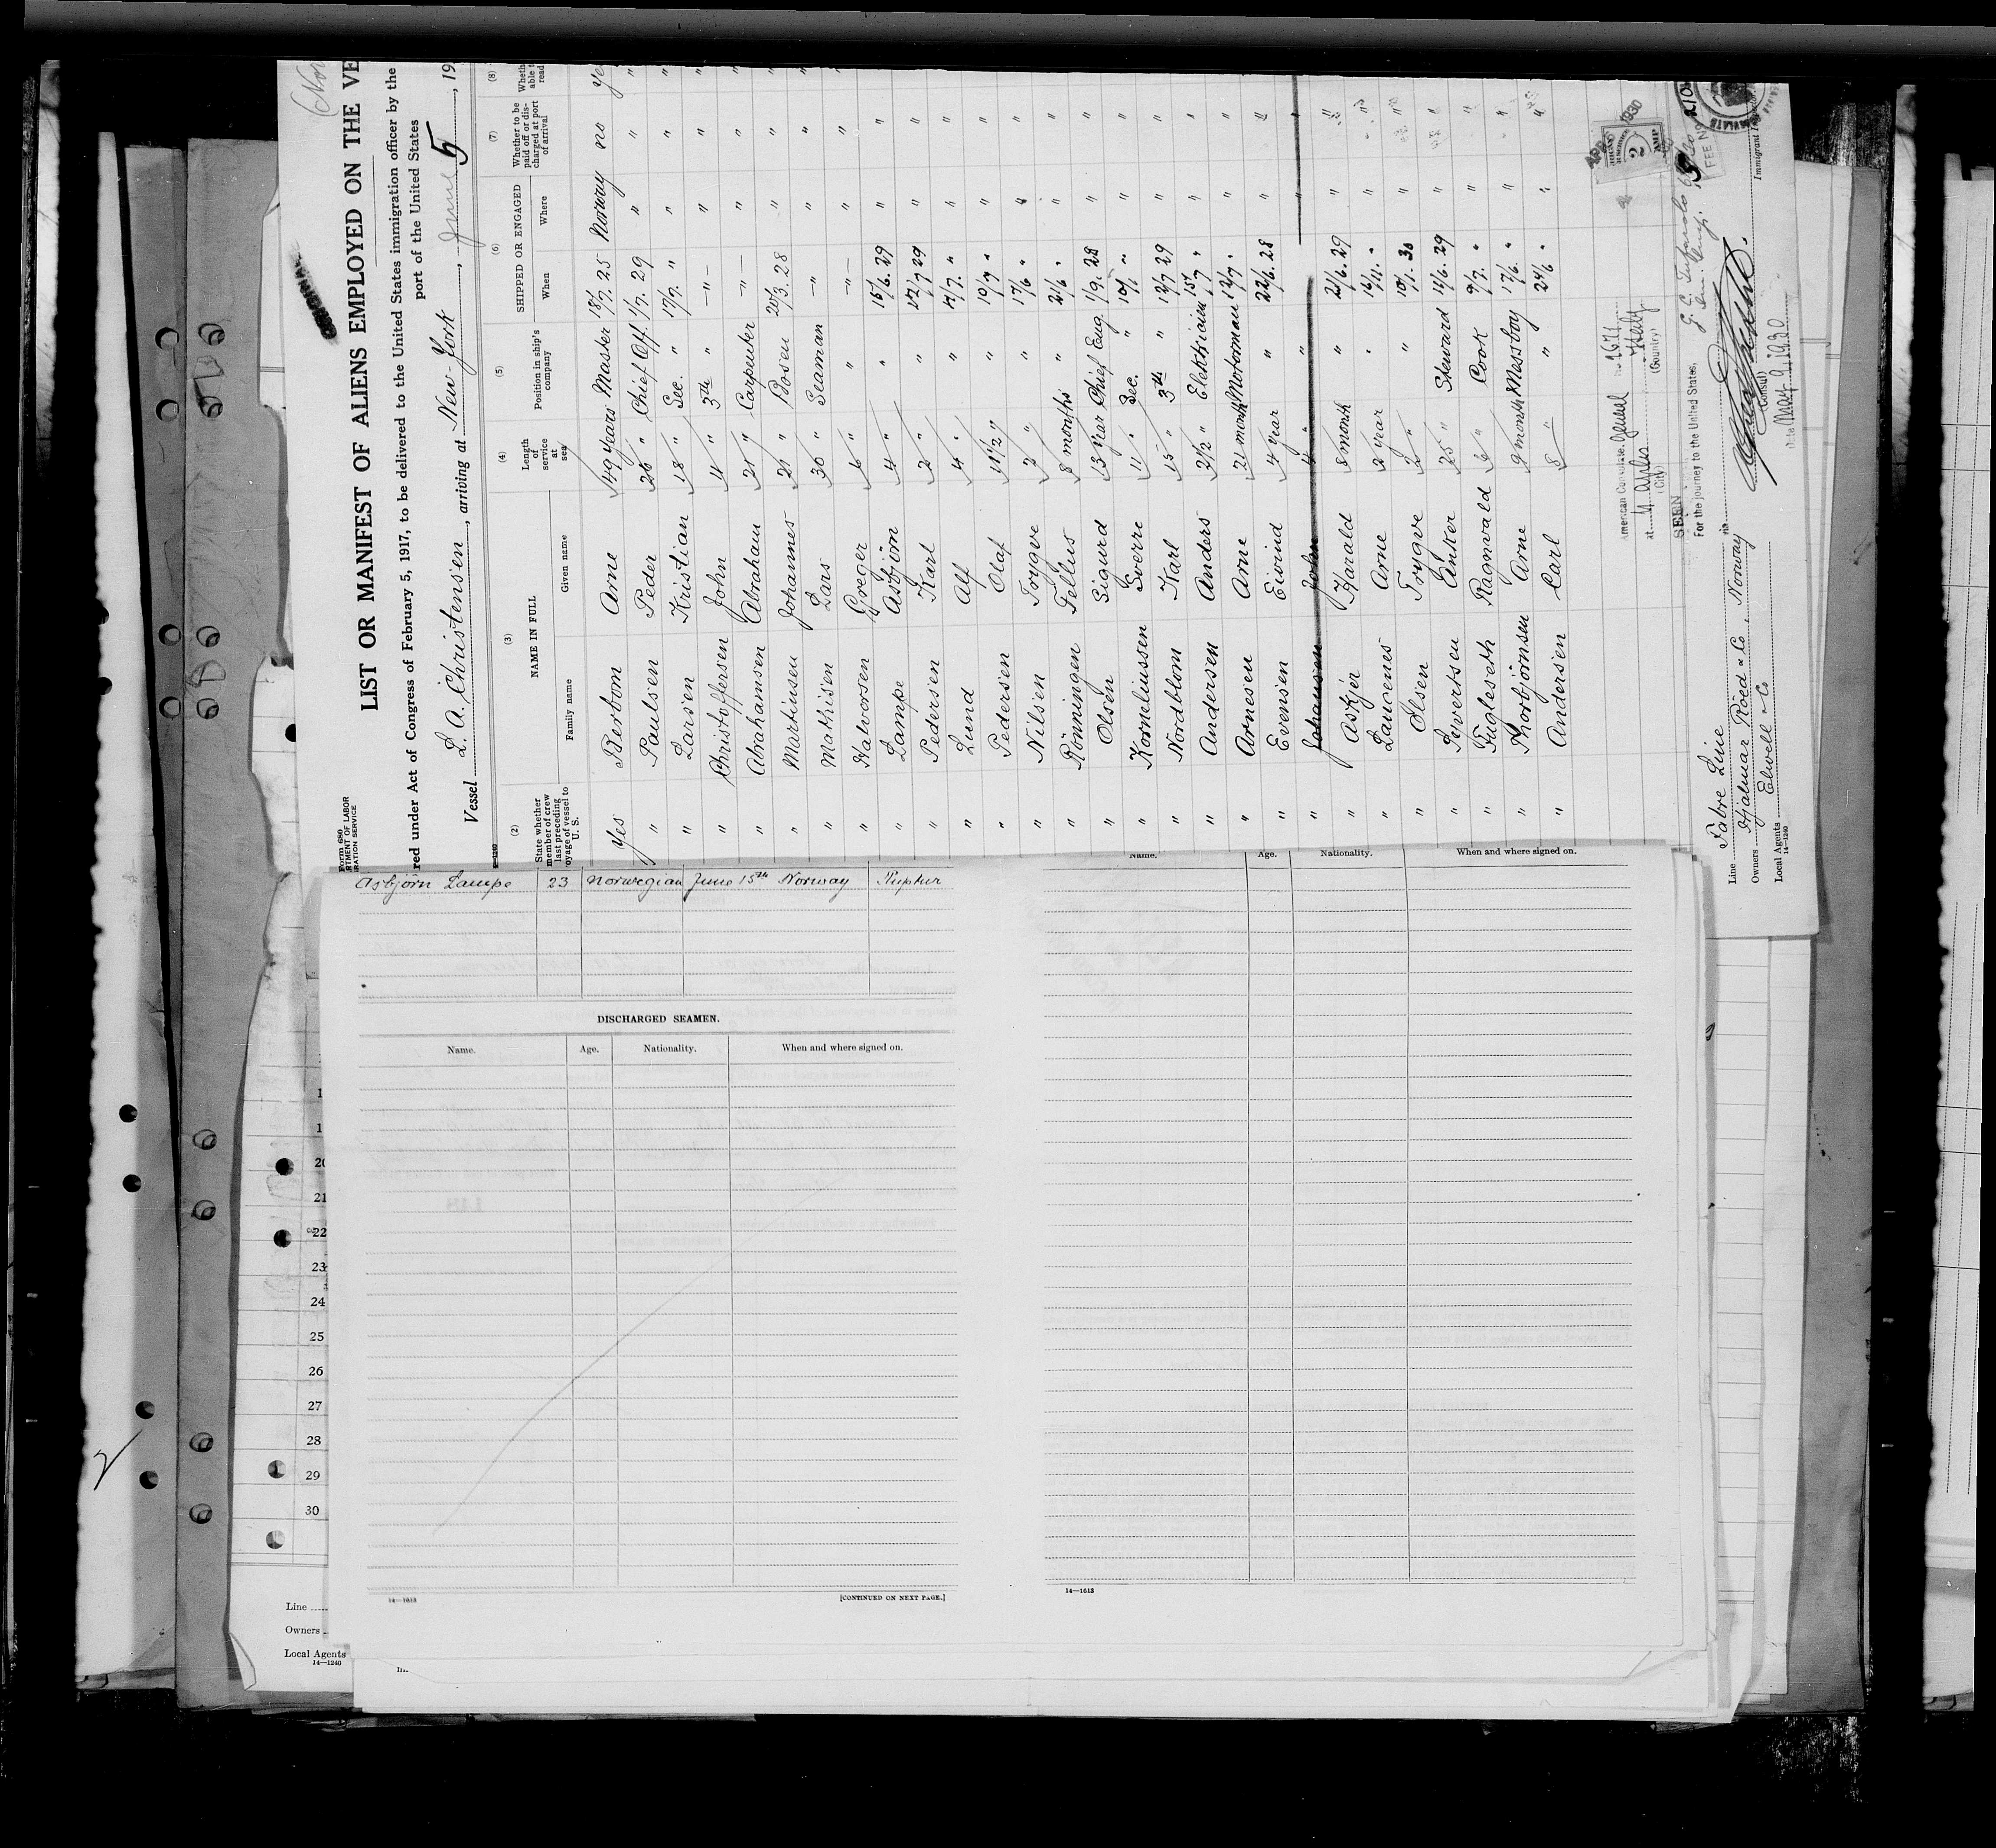 LIST OR MANIFEST OF ALIENS EMPLOYED ON THE VE
red under Act of Congress of February 5, 1917, to be delivered to the United States immigration officer by the
port of the United States
Vessel L. A. Christensen, arriving at New-York, June 5, 19
(2) (3) (4) (5) (6) (7) (8)
State whether member of crew last preceding voyage of vessel to U. S. NAME IN FULL Length of service at sea Position in ship's company SHIPPED OR ENGAGED Whether to be paid off or discharged at port of arrival
Family name Given name When Where
Yes Berbom Arne 49 years Master 18/7. 25 Norway no ye
" Paulsen Peder 26 " Chief Off. 1/7. 29 " " "
" Larsen Kristian 18 " Sec. " 17/7. " " " "
" Christoffersen John 11 " 3th " —"— " " "
" Abrahamsen Abraham 25 " Carpenter —"— " " "
" Martinsen Johannes 20 " Bosen 20/3. 28 " " "
" Mathisen Lars 30 " Seaman —"— " " "
" Halvorsen Greger 6 " " —"— " "
" Lampe Asbjörn 4 " " 15/6. 29 " "
" Pedersen Karl 2 " " 12/7 29 " "
" Lund Alf 4 " " 12/7. " " "
" Pedersen Olaf 1 1/2 " " 10/7 " " "
" Nilsen Trygve 2 " " 17/6 " " "
" Rönningen Tellus 8 months " 21/6 " " "
" Olsen Sigurd 13 year Chief Eng. 1/9. 28 " "
" Korneliussen Sverre 11 " Sec. " 10/1 " " "
" Nordblom Karl 15 " 3th " 12/7 29 " "
" Andersen Anders 2 1/2 " Elektriciam 15/7 " " "
" Arnesen Arne 21 month Motorman 12/7 " " "
" Evensen Eivind 4 year " 22/6. 28 " "
" Johansen John 4 " " " "
" Askjer Harald 8 month " 21/6. 29 " "
" Laucenes Arne 2 year " 16/11. " " "
" Olsen Trygve 2 " " 10/1. 30 " "
" Syvertsen Anker 25 " Steward 16/6. 29 " "
" Fugleseth Ragnvald 6 " Cook 9/7. " " "
" Thorbjörnsen Arne 9 month Messboy 17/6. " " "
" Andersen Carl 8 " " 24/6 " " "
American Consulate General No 1677
at Naples Italy
(City) (Country)
SEEN
For the journey to the United States.
(Consul)
Date May 9 1930
FEE NO
Immigrant
Line Fabre Line
Owners Hjalmar Röed & Co, Norway
Local Agents Elwell & Co
14—1240
Name. Age. Nationality. When and where signed on.
Asbjörn Lampe 23 Norwegian June 15th Norway Ruptur
DISCHARGED SEAMEN.
Name. Age. Nationality. When and where signed on.
20
21
22
23
24
25
26
27
28
29
30
14—1613
[CONTINUED ON NEXT PAGE.]
14—1613
Line
Owners
Local Agents
14—1240